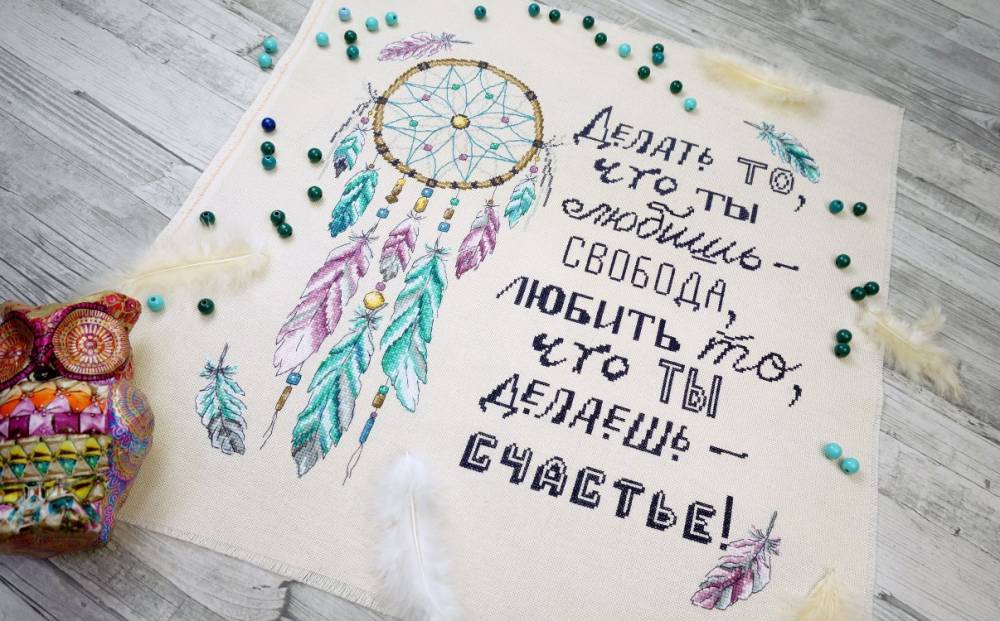 Делать то,
что ты
любишь –
СВОБОДА,
ЛЮБИТЬ то,
что ТЫ
ДЕЛАЕШЬ –
СЧАСТЬЕ!